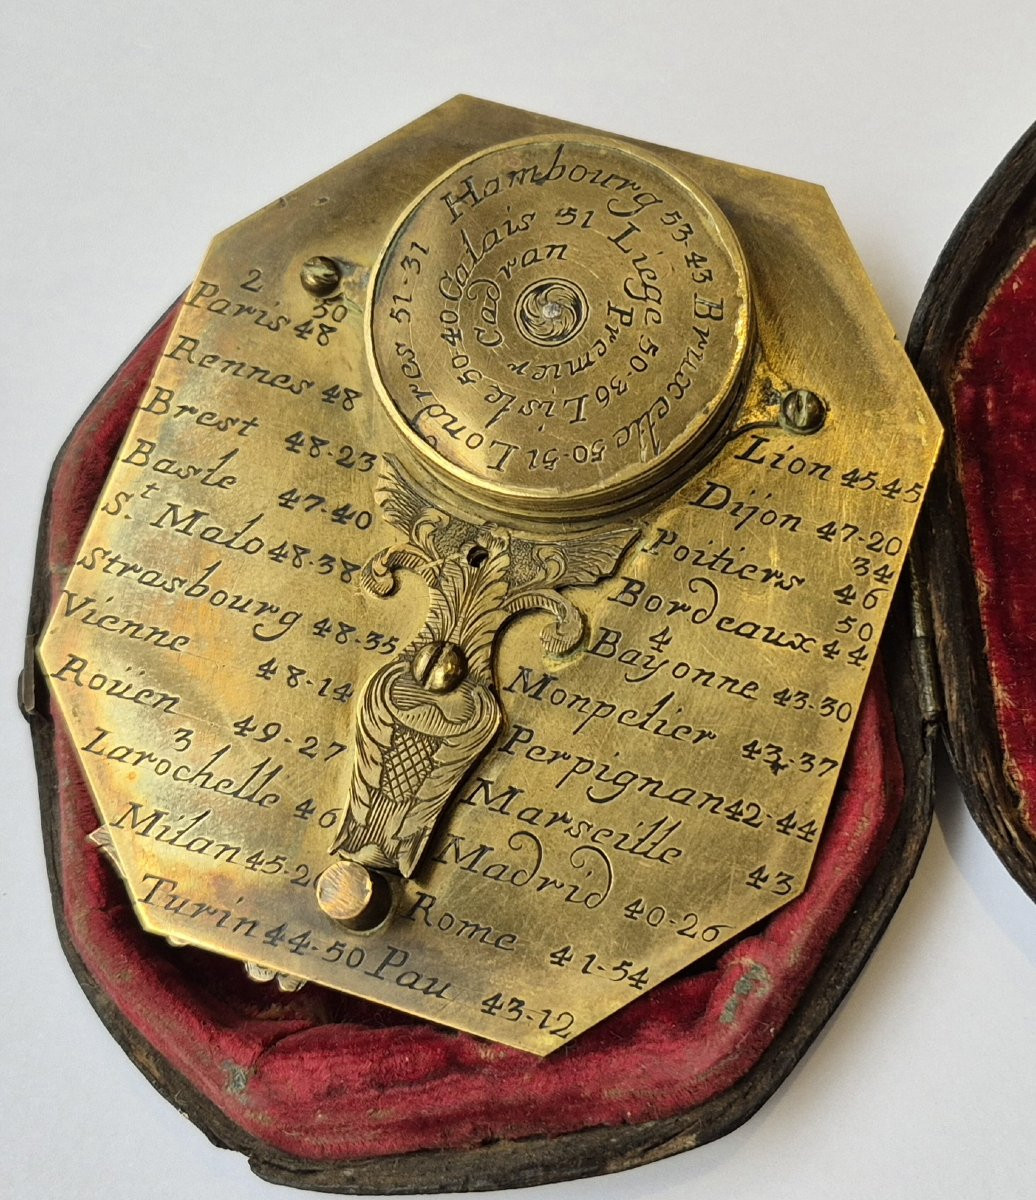 Hambourg 53-43 Bruxelle 50-51 Londres 51-31
Calais 51 Liege 50-36 Lisle 50-40
Premier Cadran
2
50
Paris 48
Rennes 48
Brest 48-23
Basle 47-40
St. Malo 48-38
Strasbourg 48-35
Vienne 48-14
Roüen 49-27
3
Larochelle 46
Milan 45-2
Turin 44-50
Lion 45-45
Dijon 47-20
34
Poitiers 46
50
Bordeaux 44
4
Bayonne 43-30
Monpelier 43-37
Perpignan 42-44
Marseille 43
Madrid 40-26
Rome 41-54
Pau 43-12